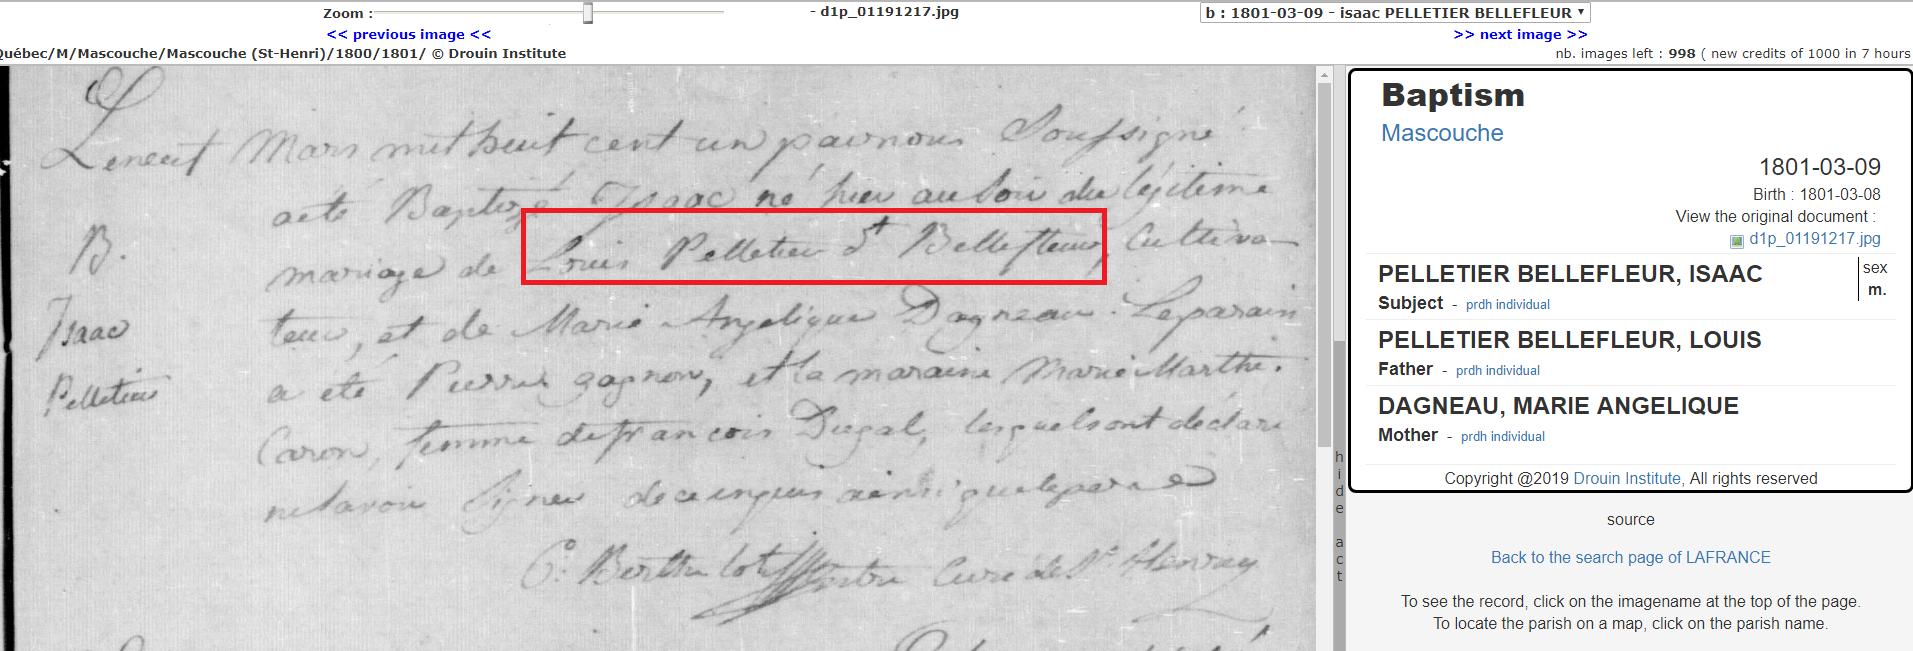 Zoom :
- d1p_01191217.jpg
b : 1801-03-09 - isaac PELLETIER BELLEFLEUR
<< previous image <<
>> next image >>
Québec/M/Mascouche/Mascouche (St-Henri)/1800/1801/ © Drouin Institute
nb. images left : 998 ( new credits of 1000 in 7 hours
Le neuf Mars mil huit cent un par nous Soussigné
a été Baptizé Isaac né hier au soir du légitime
B.
mariage de Louis Pelletier dt Bellefleur, Cultiva-
Isaac
teur, et de Marie Angelique Dagneau. Le parain
Pelletier
a été Pierre gagnon, et la maraine Marie Marthe
Caron, femme de francois Dugal, lesquels ont déclaré
ne savoir signer de ce enquis ainsi que le pere
C. Berthelot Ptre Curé de St Henry
hide act
Baptism
Mascouche
1801-03-09
Birth : 1801-03-08
View the original document :
d1p_01191217.jpg
PELLETIER BELLEFLEUR, ISAAC
sex
m.
Subject - prdh individual
PELLETIER BELLEFLEUR, LOUIS
Father - prdh individual
DAGNEAU, MARIE ANGELIQUE
Mother - prdh individual
Copyright @2019 Drouin Institute, All rights reserved
source
Back to the search page of LAFRANCE
To see the record, click on the imagename at the top of the page.
To locate the parish on a map, click on the parish name.